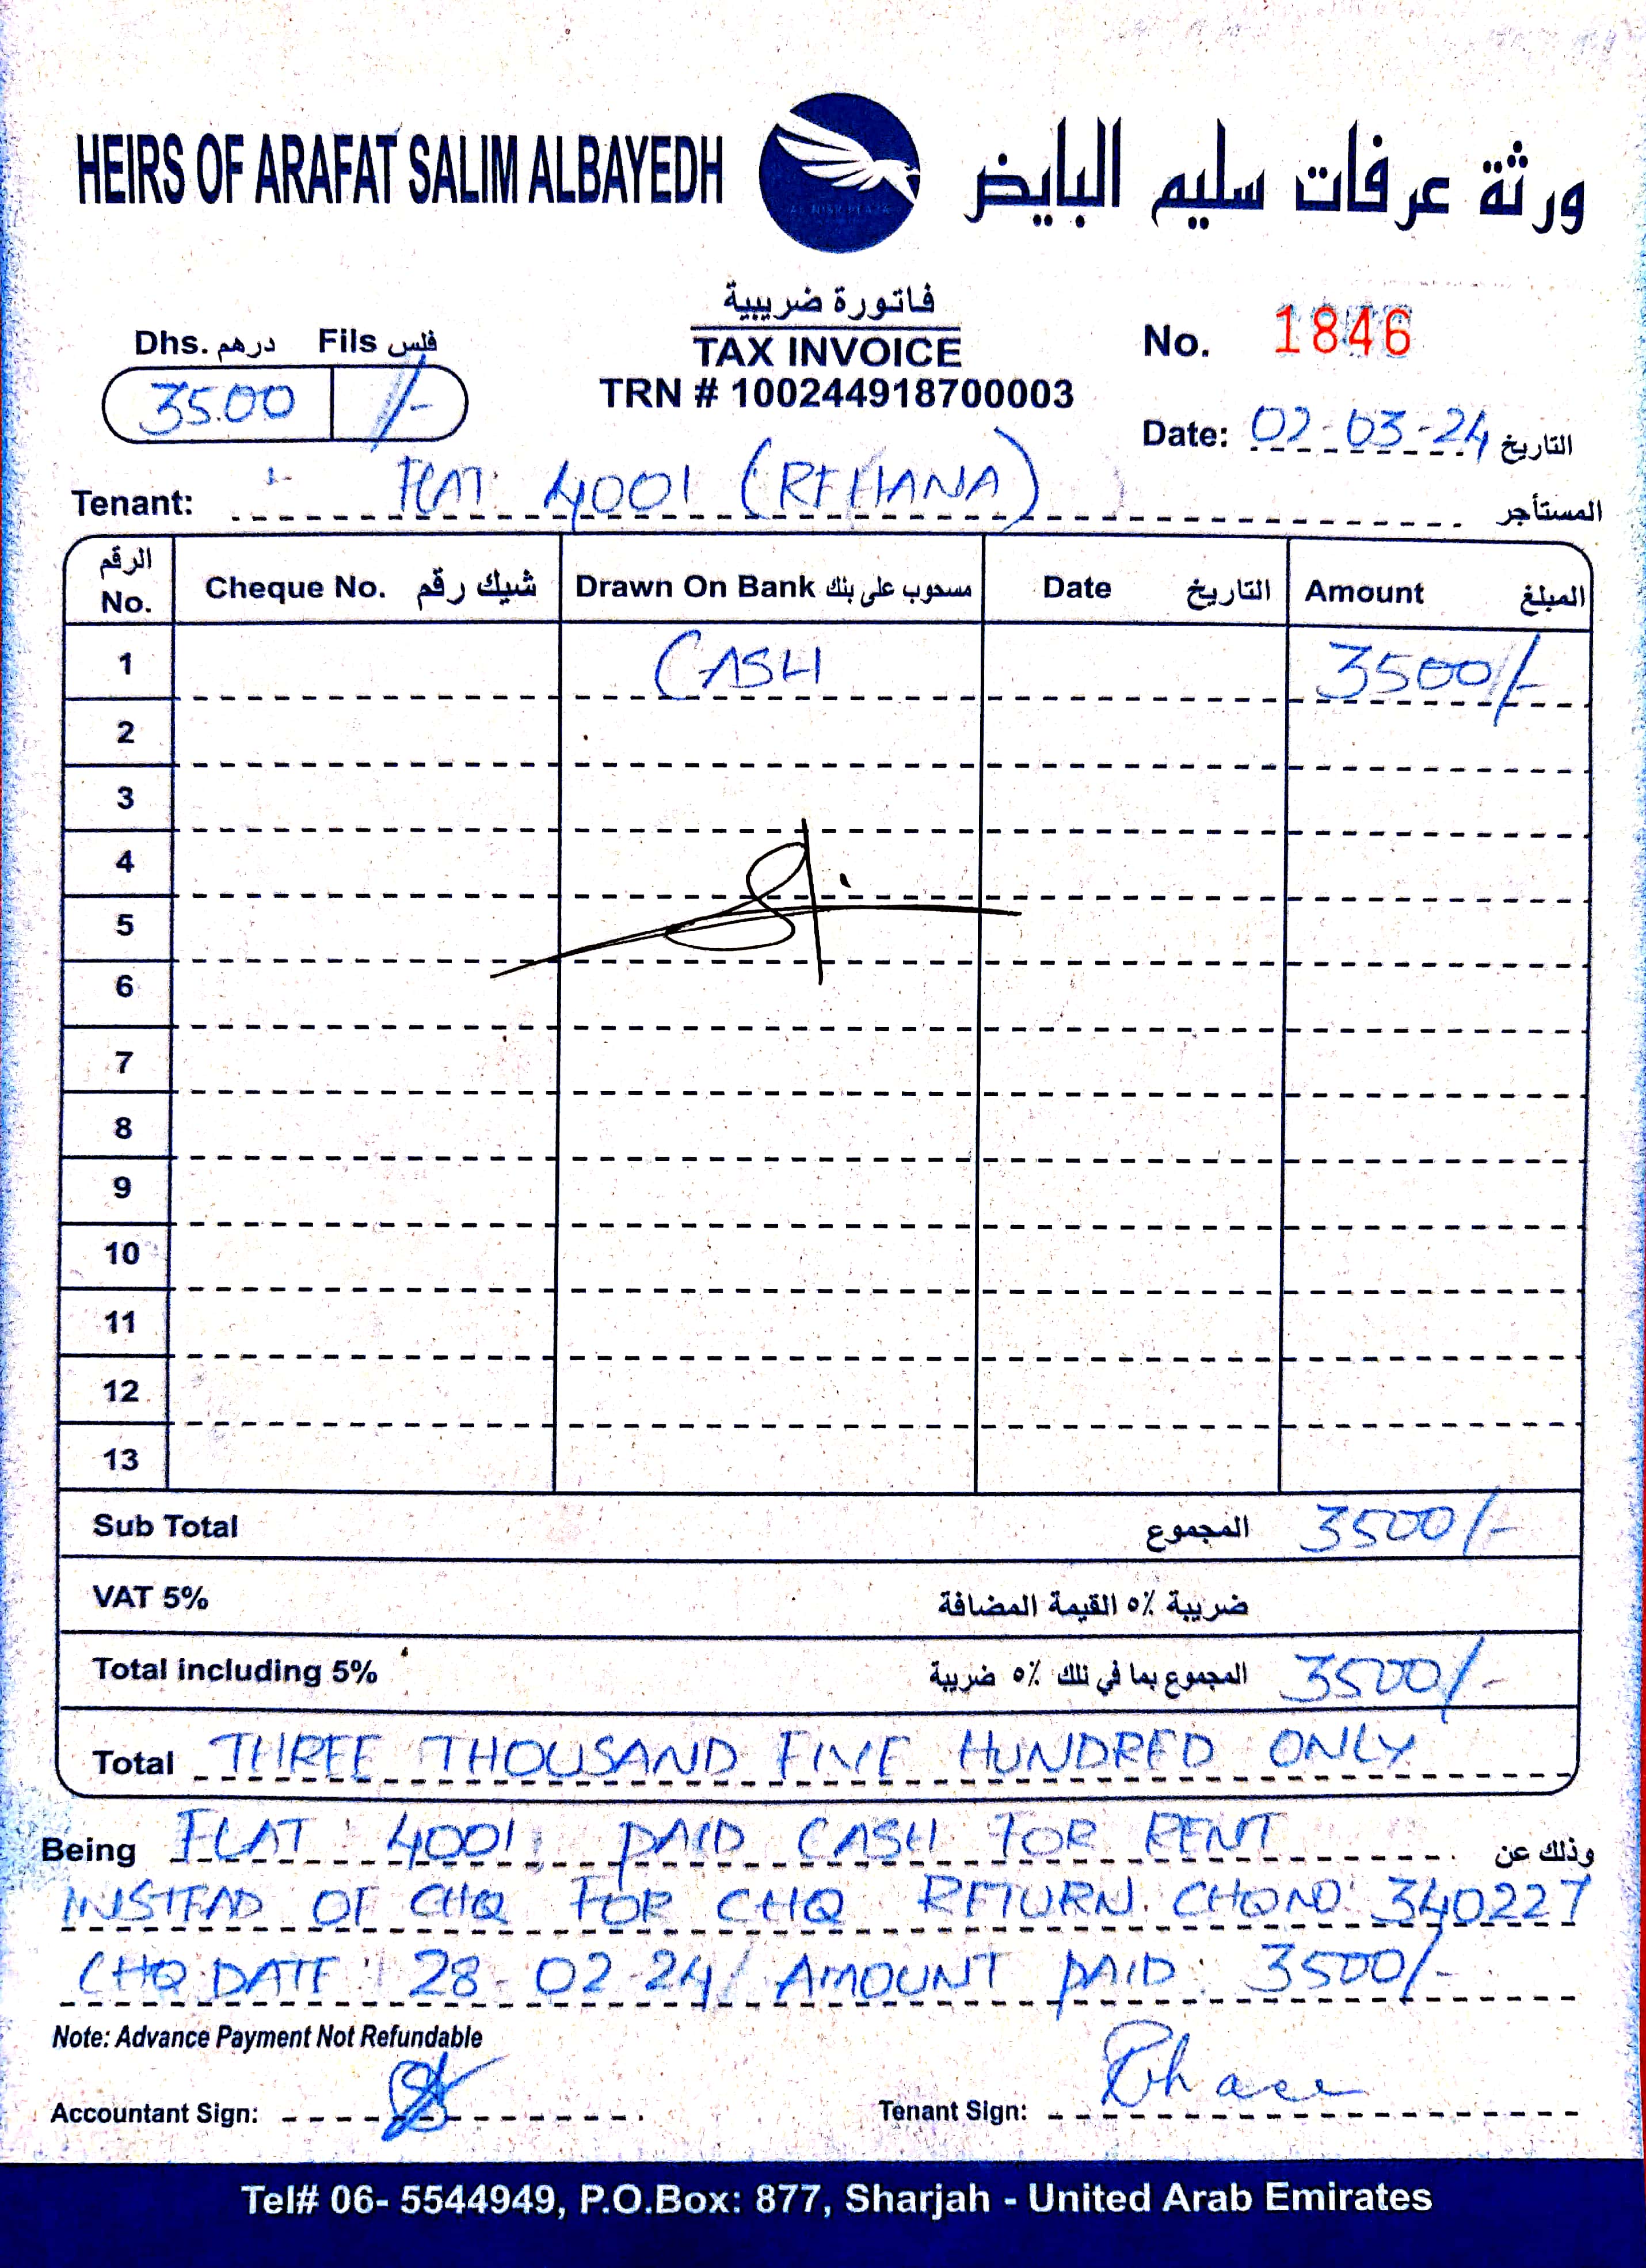 HEIRS OF ARAFAT SALIM ALBAYEDH ورثة عرفات سليم البايض
AL NISR PLAZA
فاتورة ضريبية
TAX INVOICE
TRN # 100244918700003
Dhs. درهم Fils فلس
3500 /-
No. 1846
Date: 02-03-24 التاريخ
Tenant: FLAT: 4001 (REHANA) المستأجر
الرقم No. Cheque No. شيك رقم Drawn On Bank مسحوب على بنك Date التاريخ Amount المبلغ
1 CASH 3500/-
2
3
4
5
6
7
8
9
10
11
12
13
Sub Total المجموع 3500/-
VAT 5% ضريبة ٥٪ القيمة المضافة
Total including 5% المجموع بما في ذلك ٥٪ ضريبة 3500/-
Total THREE THOUSAND FIVE HUNDRED ONLY
Being FLAT: 4001, PAID CASH FOR RENT وذلك عن
INSTEAD OF CHQ FOR CHQ RETURN. CHQNO: 340227
CHQ DATE: 28-02-24/ AMOUNT PAID: 3500/-
Note: Advance Payment Not Refundable
Accountant Sign: Tenant Sign:
Tel# 06- 5544949, P.O.Box: 877, Sharjah - United Arab Emirates